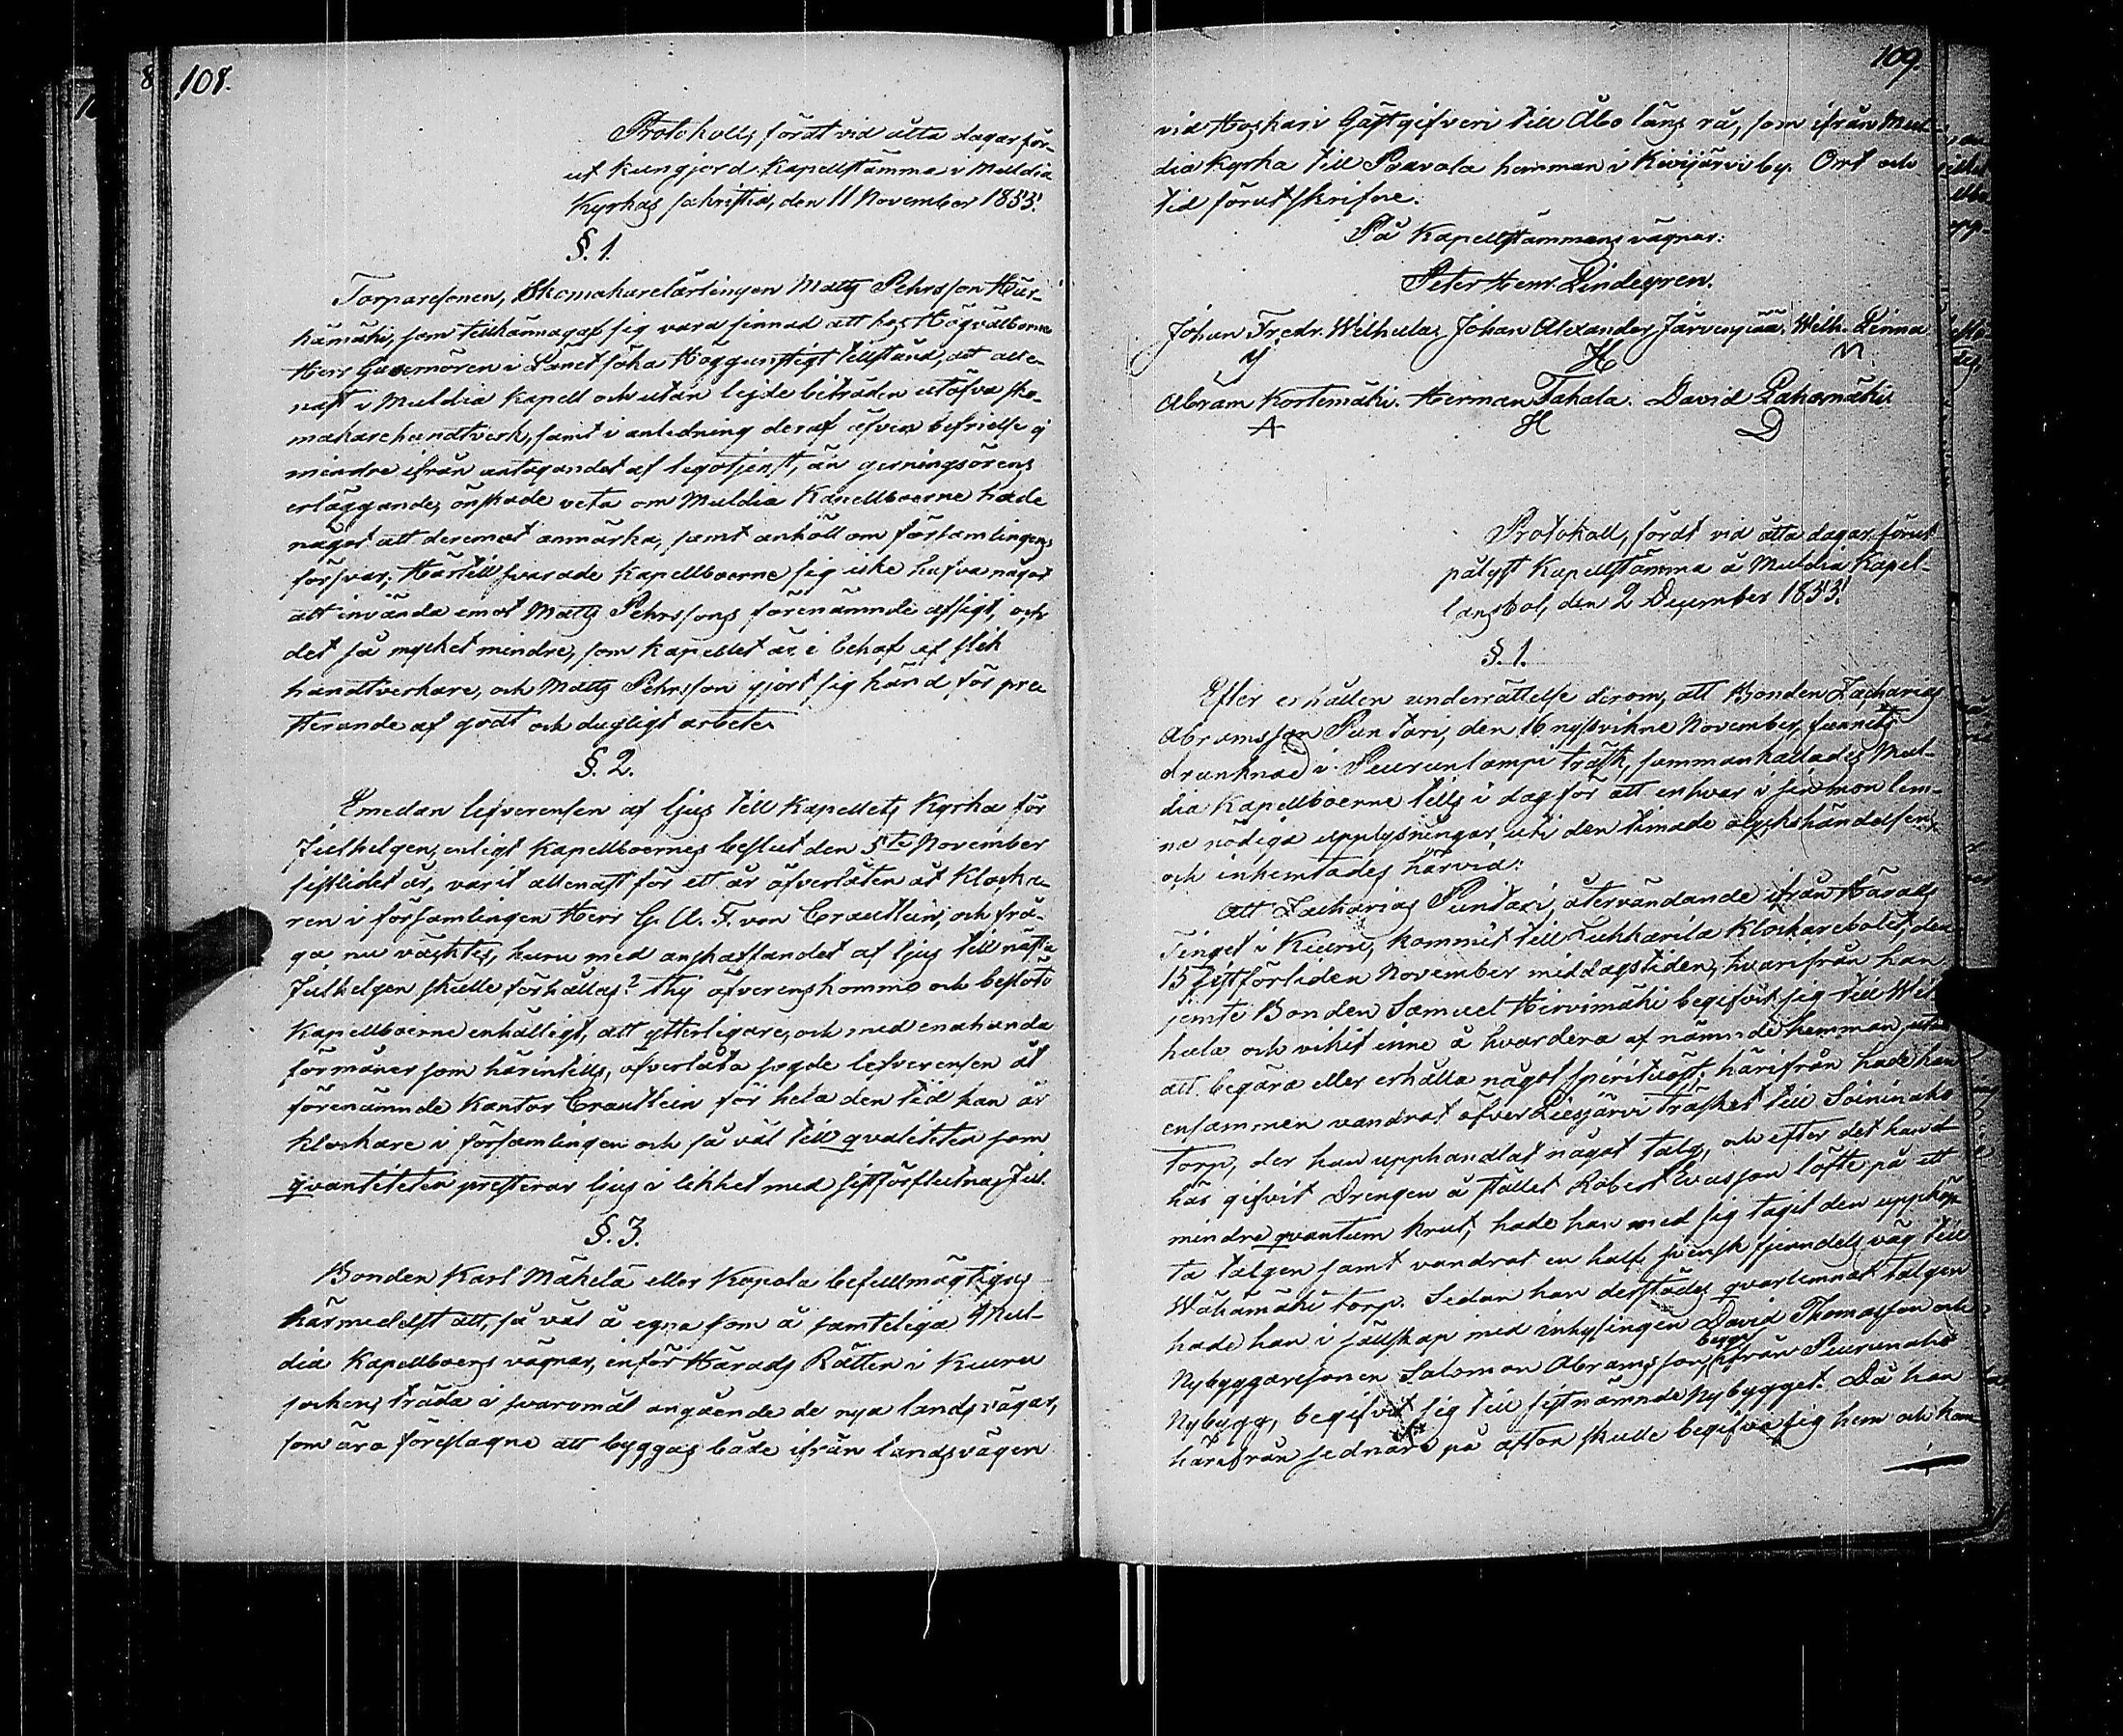 108.
Protokoll, fördt vid åtta dagar för-
ut kungjord Kapellstämma i Muldia
Kyrkas sakristia, den 11 November 1853.
§. 1.
Torparesonen, Skomakarelärlingen Matts Pehrsson Här-
kämäki, som tillkännagaf sig vara sinnad att hos Högvälborne
Herr Guvernören i Länet söka Höggunstigt tillstånd, att alle-
nast i Muldia Kapell och utan lejde biträden utöfva sko-
makarehandtverk, samt i anledning deraf äfven befrielse ej
mindre ifrån antagandet af legotjenst, än gerningsörens
erläggande, önskade veta om Muldia Kapellboerne hade
något att deremot anmärka, samt anhöll om församlingens
försvar; Härtill svarade Kapellboerne sig icke hafva något
att invända emot Matts Pehrssons förenämnde afsigt, och
det så mycket mindre, som kapellet är i behof af slik
handtverkare, och Matts Pehrsson gjort sig känd för pre-
sterande af godt och dugligt arbete.
§. 2.
Emedan lefverensen af ljus till Kapellets Kyrka för
Julhelgen, enligt Kapellboernes beslut den 5te November
sistlidet år, varit allenast för ett år öfverlåten åt Klocka-
ren i församlingen Herr G. A. F. von Crautlein, och frå-
ga nu väcktes, huru med anskaffandet af ljus till nästa
Julhelgen skulle förhållas? thy öfverenskommo och besloto
Kapellboerne enhälligt, att ytterligare, och med enahanda
förmåner som härintills, öfverlåta sagde lefverensen åt
förenämnde Kantor Crautlein för hela den tid han är
klockare i församlingen och så väl till qvaliteten som
qvantiteten presterar ljus i likhet med sistförflutnas Jul.
§. 3.
Bonden Karl Mäkelä eller Kapala befullmägtigas
härmedelst att, så väl å egna som å samteliga Mul-
dia Kapellboers vägnar, inför Härads Rätten i Kuru
sockens träda i svaromål angående de nya landsvägar,
som äro föreslagne att byggas både ifrån landsvägen
109.
vid Hoskari Gästgifveri till Åbo läns rå, som ifrån Mul-
dia Kyrka till Paavola hemman i Kivijärvi by. Ort och
tid förutskrifne.
På Kapellstämmans vägnar:
Peter Henr. Lindegren.
Johan Fredr. Wilhula. Johan Alexander Järvenpää. Wilh. Linna
H
Abram Kortemäki. Herman Tahala. David Pahamäki
A H D
Protokoll, fördt vid åtta dagar förut
pålyst Kapellstämma å Muldia Kapel-
lansbol, den 2 December 1853.
§. 1.
Efter erhållen underrättelse derom, att Bonden Zacharias
Abramsson Puntari, den 16 nyssvikne November, funnits
drunknad i Peuranlampi träsk, sammankallades Mul-
dia Kapellboerne tills i dag för att enhvar i sin mon lem-
na nödiga upplysningar uti den timade olyckshändelsen
och inhemtades härvid:
Att Zacharias Puntari, återvändande ifrån Härads
Tinget i Kuru, kommit till Kukkarila Klockarebolet, den
15 sistförliden November middagstiden, hvarifrån han
jemte Bonden Samuel Hirvimäki begifvit sig till Wil-
hula och vikit inne å hvardera af nämnde hemman, utan
att begära eller erhålla något spirituöst; härifrån hade han
ensammen vandrat öfver Liesjärvi träsket till Soininaho
torp, der han upphandlat något talg, och efter det hand
här gifvit Drengen å stället Robert Evasson löfte på ett
mindre qvantum krut, hade han med sig tagit den uppköp-
ta talgen samt vandrat en half svensk fjerndels väg till
Wähämäki torp. Sedan han derstädes qvarlemnat talgen
hade han i sällskap med inhysingen David Thomasson och
Nybyggaresonen Salomon Abramsson, begge ifrån Peuranaho
Nybygg, begifvit sig till sistnämnde Nybygget. Då han
härifrån sednare på afton skulle begifva sig hem och han